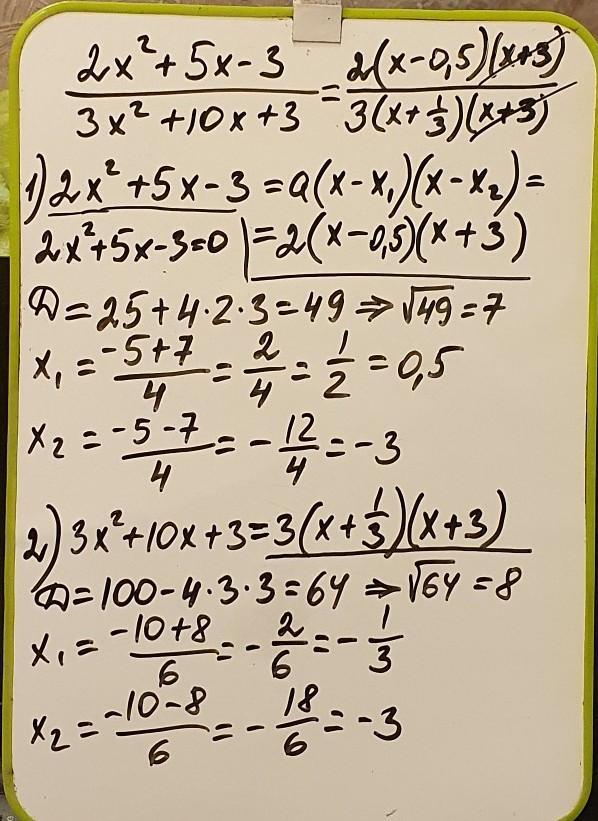 (2x² + 5x - 3)/(3x² + 10x + 3) = (2(x - 0,5)(x+3))/(3(x + 1/3)(x+3))
1) 2x² + 5x - 3 = a(x - x₁)(x - x₂) =
2x² + 5x - 3 = 0 | = 2(x - 0,5)(x + 3)
D = 25 + 4 · 2 · 3 = 49 ⇒ √49 = 7
x₁ = (-5 + 7)/4 = 2/4 = 1/2 = 0,5
x₂ = (-5 - 7)/4 = - 12/4 = -3
2) 3x² + 10x + 3 = 3(x + 1/3)(x + 3)
D = 100 - 4 · 3 · 3 = 64 ⇒ √64 = 8
x₁ = (-10 + 8)/6 = - 2/6 = - 1/3
x₂ = (-10 - 8)/6 = - 18/6 = -3